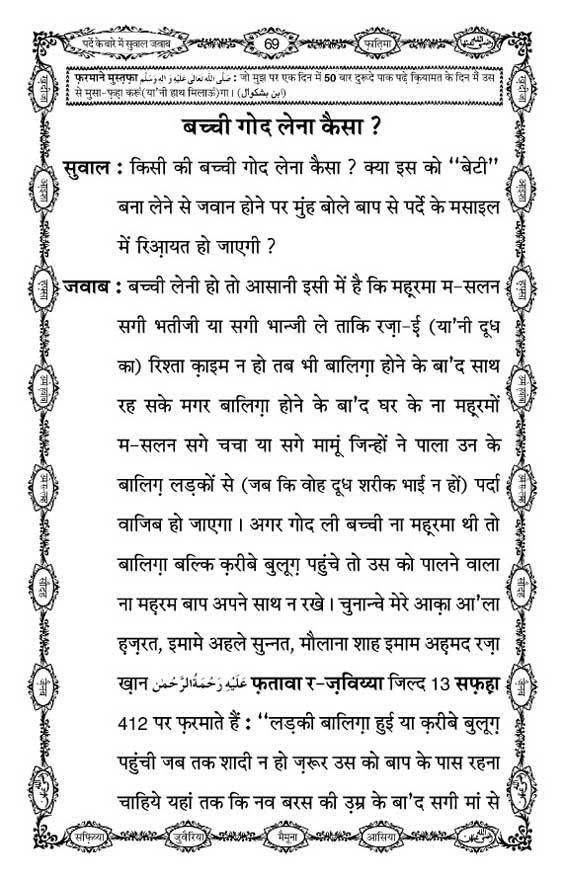 पर्दे के बारे में सुवाल जवाब
69
फ़ातिमा
फ़रमाने मुस्तफ़ा صَلَّی اللہُ تَعَالٰی عَلَیْہِ وَاٰلِہٖ وَسَلَّم : जो मुझ पर एक दिन में 50 बार दुरूदे पाक पढ़े क़ियामत के दिन मैं उस
से मुसा-फ़हा करूं(या'नी हाथ मिलाऊं)गा। (ابن بشکوال)
बच्ची गोद लेना कैसा ?
सुवाल : किसी की बच्ची गोद लेना कैसा ? क्या इस को “बेटी”
बना लेने से जवान होने पर मुंह बोले बाप से पर्दे के मसाइल
में रिआ़यत हो जाएगी ?
जवाब : बच्ची लेनी हो तो आसानी इसी में है कि मह़रमा म-सलन
सगी भतीजी या सगी भान्जी ले ताकि रज़ा-ई (या'नी दूध
का) रिश्ता क़ाइम न हो तब भी बालिग़ा होने के बा'द साथ
रह सके मगर बालिग़ा होने के बा'द घर के ना मह़रमों
म-सलन सगे चचा या सगे मामूं जिन्हों ने पाला उन के
बालिग़ लड़कों से (जब कि वोह दूध शरीक भाई न हों) पर्दा
वाजिब हो जाएगा। अगर गोद ली बच्ची ना मह़रमा थी तो
बालिग़ा बल्कि क़रीबे बुलूग़ पहुंचे तो उस को पालने वाला
ना मह़रम बाप अपने साथ न रखे। चुनान्चे मेरे आक़ा आ'ला
ह़ज़रत, इमामे अहले सुन्नत, मौलाना शाह इमाम अह़मद रज़ा
ख़ान عَلَیْہِ رَحْمَۃُ الرَّحْمٰن फ़तावा र-ज़विय्या जिल्द 13 सफ़ह़ा
412 पर फ़रमाते हैं : “लड़की बालिग़ा हुई या क़रीबे बुलूग़
पहुंची जब तक शादी न हो ज़रूर उस को बाप के पास रहना
चाहिये यहां तक कि नव बरस की उ़म्र के बा'द सगी मां से
सफ़िय्या
जुवैरिया
मैमूना
आसिया